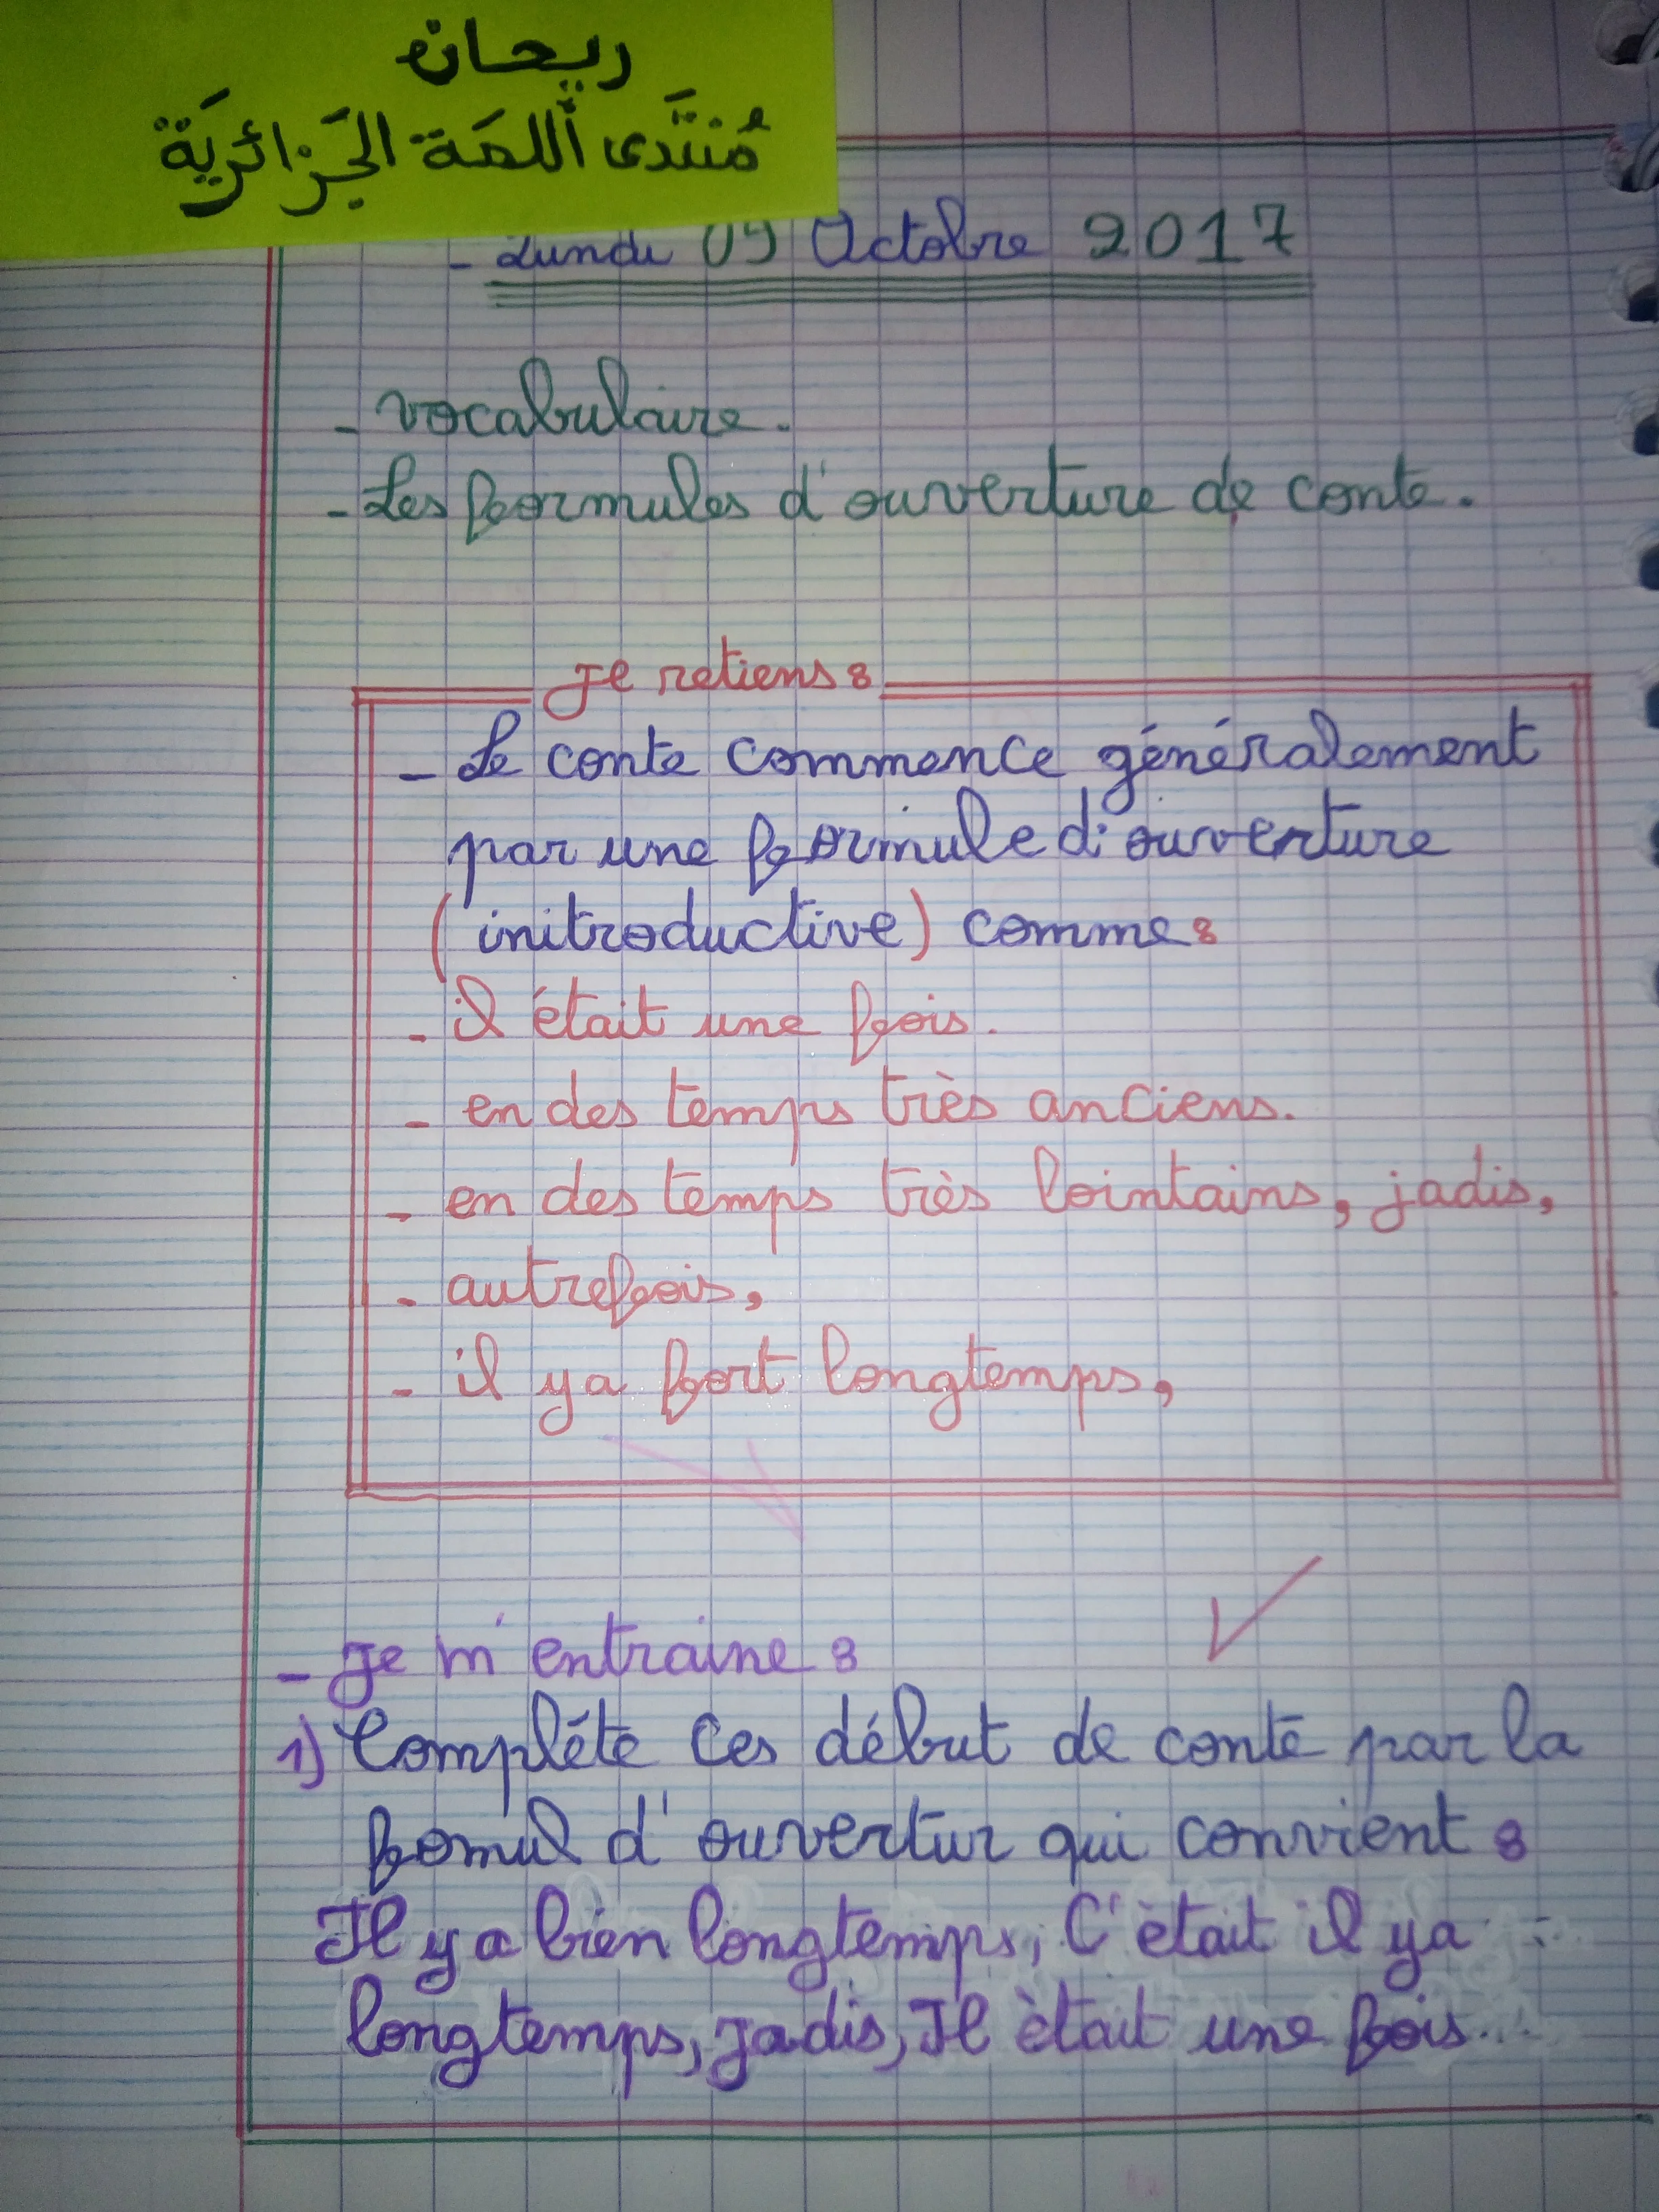 ريحان
مُنتَدى اَللمَة الجَزائريَة
- Lundi 09 Octobre 2017
- vocabulaire.
- Les formules d'ouverture de conte.
Je retiens :
- Le conte commence généralement
par une formule d'ouverture
(initroductive) comme :
- il était une fois.
- en des temps très anciens.
- en des temps très lointains, jadis,
- autrefois,
- il y a fort longtemps,
- Je m'entraine :
1) Compléte ces début de conte par la
fomul d'ouvertur qui convient :
Il y a bien longtemps, C'était il y a
longtemps, jadis, Il ètait une fois...